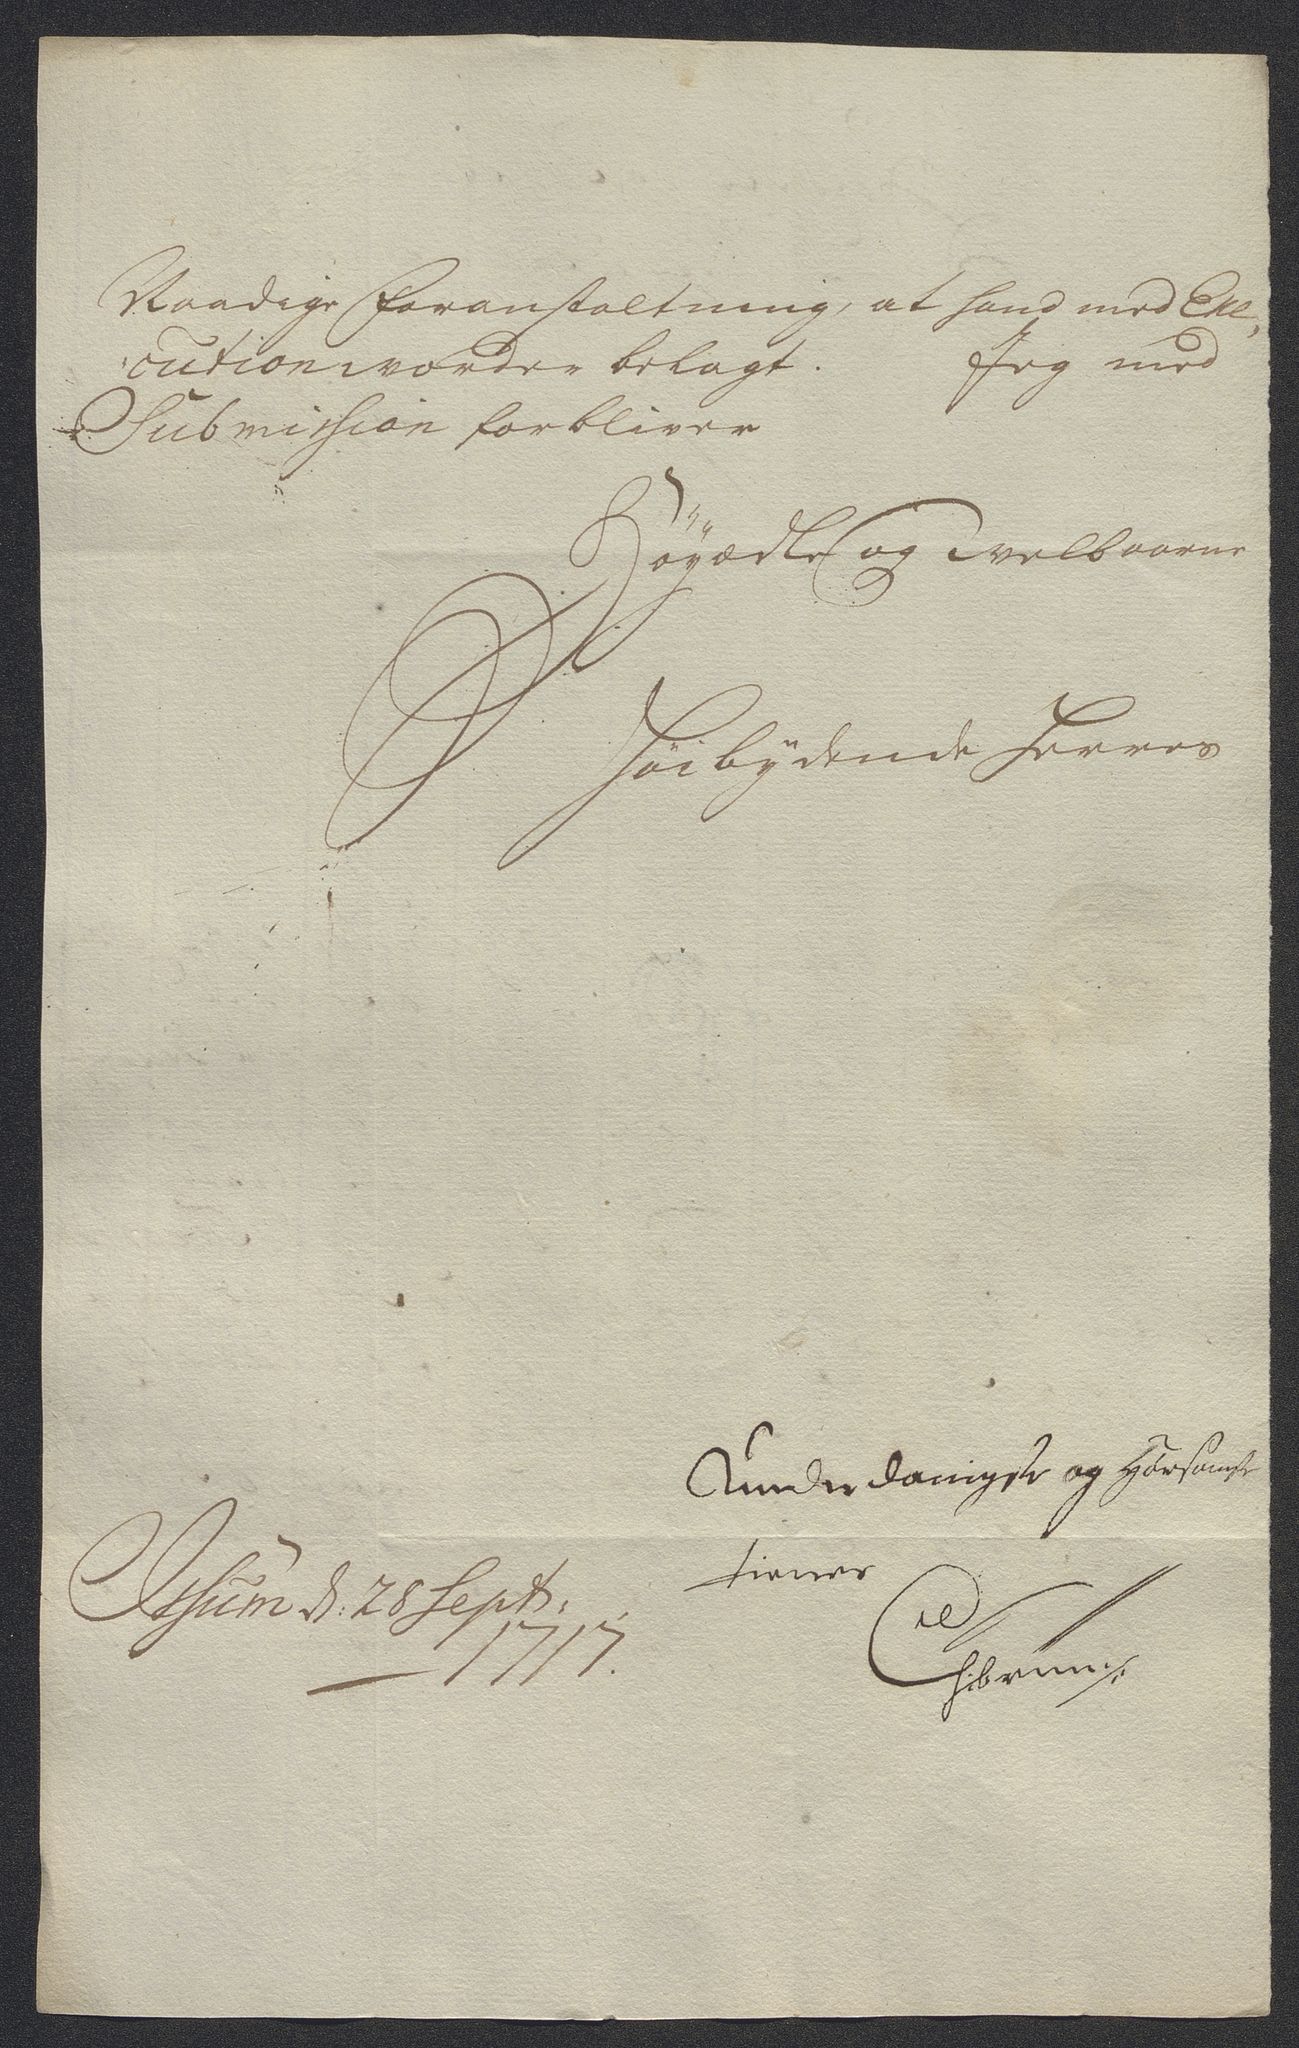 Naadige Foranstaltning, at hand med Exe,
cution worder belagt. Jeg med
Submission forbliver
Höyædle og Welbaarne
Höibÿdende Herres
Underdanigste og Hörsomste
tiener
d: 28 Sept:
1717.